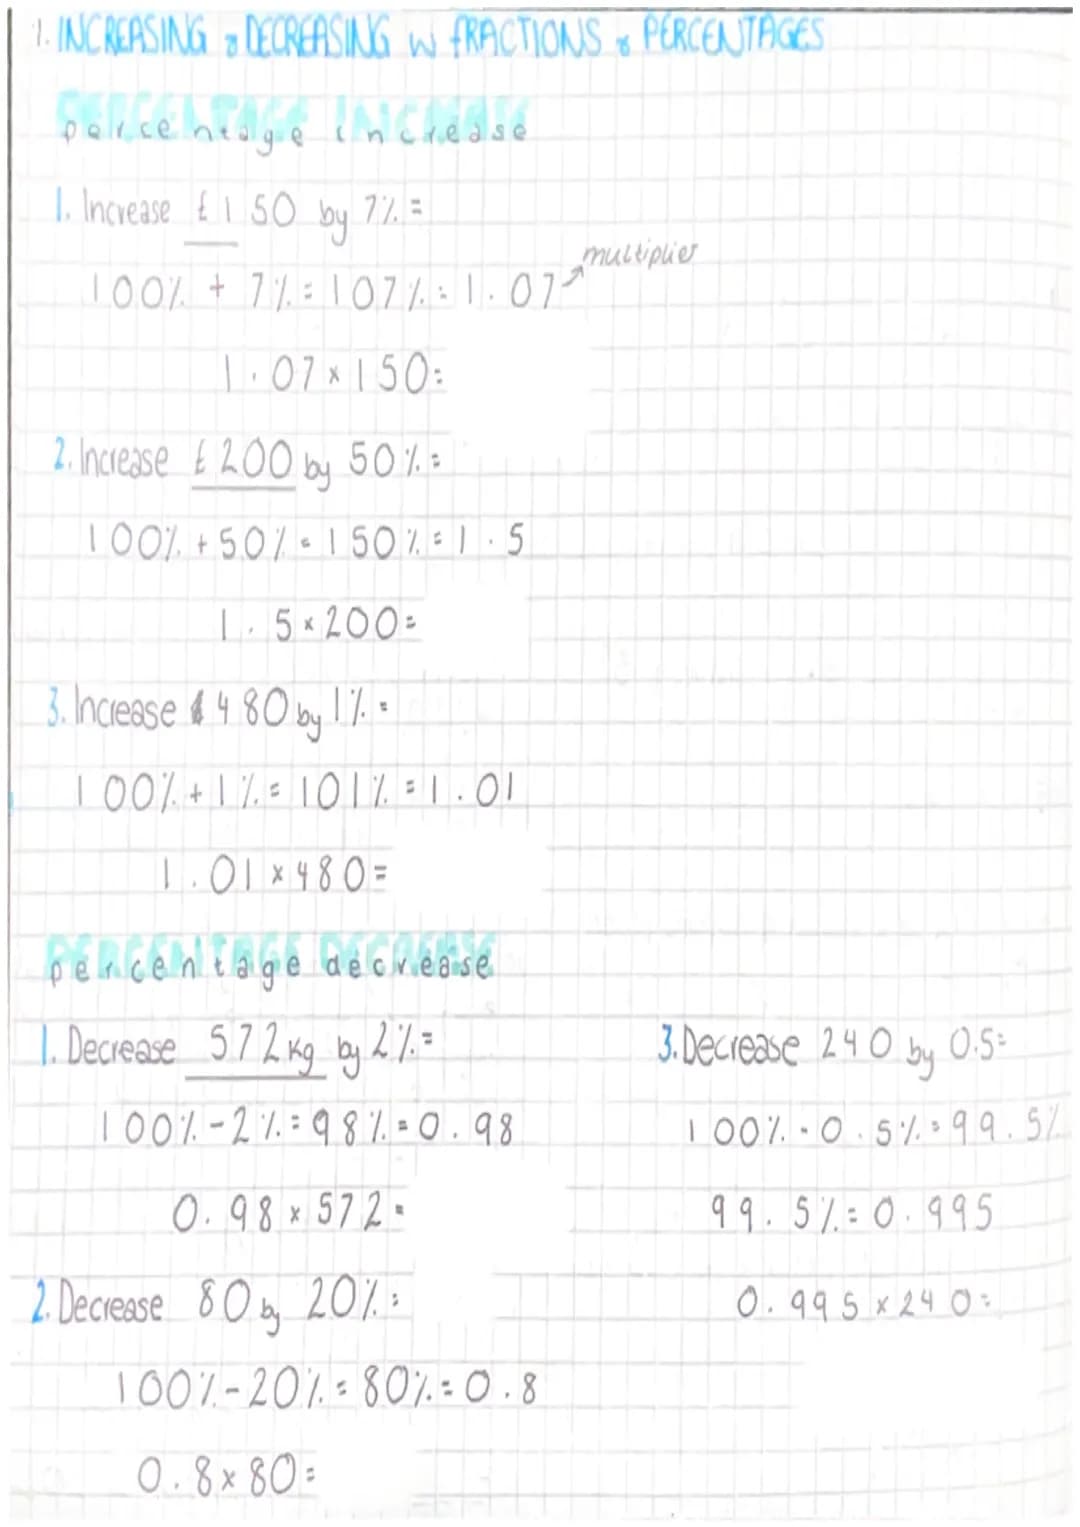 1. INCREASING & DECREASING W FRACTIONS & PERCENTAGES
PERCENTAGE INCREASE
percentage increase
1. Increase £150 by 7% =
multiplier
100% + 7% = 107% = 1.07
1.07 × 150 =
2. Increase £200 by 50% =
100% + 50% = 150% = 1.5
1.5 × 200 =
3. Increase 480 by 1% =
100% + 1% = 101% = 1.01
1.01 × 480 =
PERCENTAGE DECREASE
percentage decrease
1. Decrease 572kg by 2% =
100% - 2% = 98% = 0.98
0.98 × 572 =
2. Decrease 80 by 20% =
100% - 20% = 80% = 0.8
0.8 × 80 =
3. Decrease 240 by 0.5 =
100% - 0.5% = 99.5%
99.5% = 0.995
0.995 × 240 =